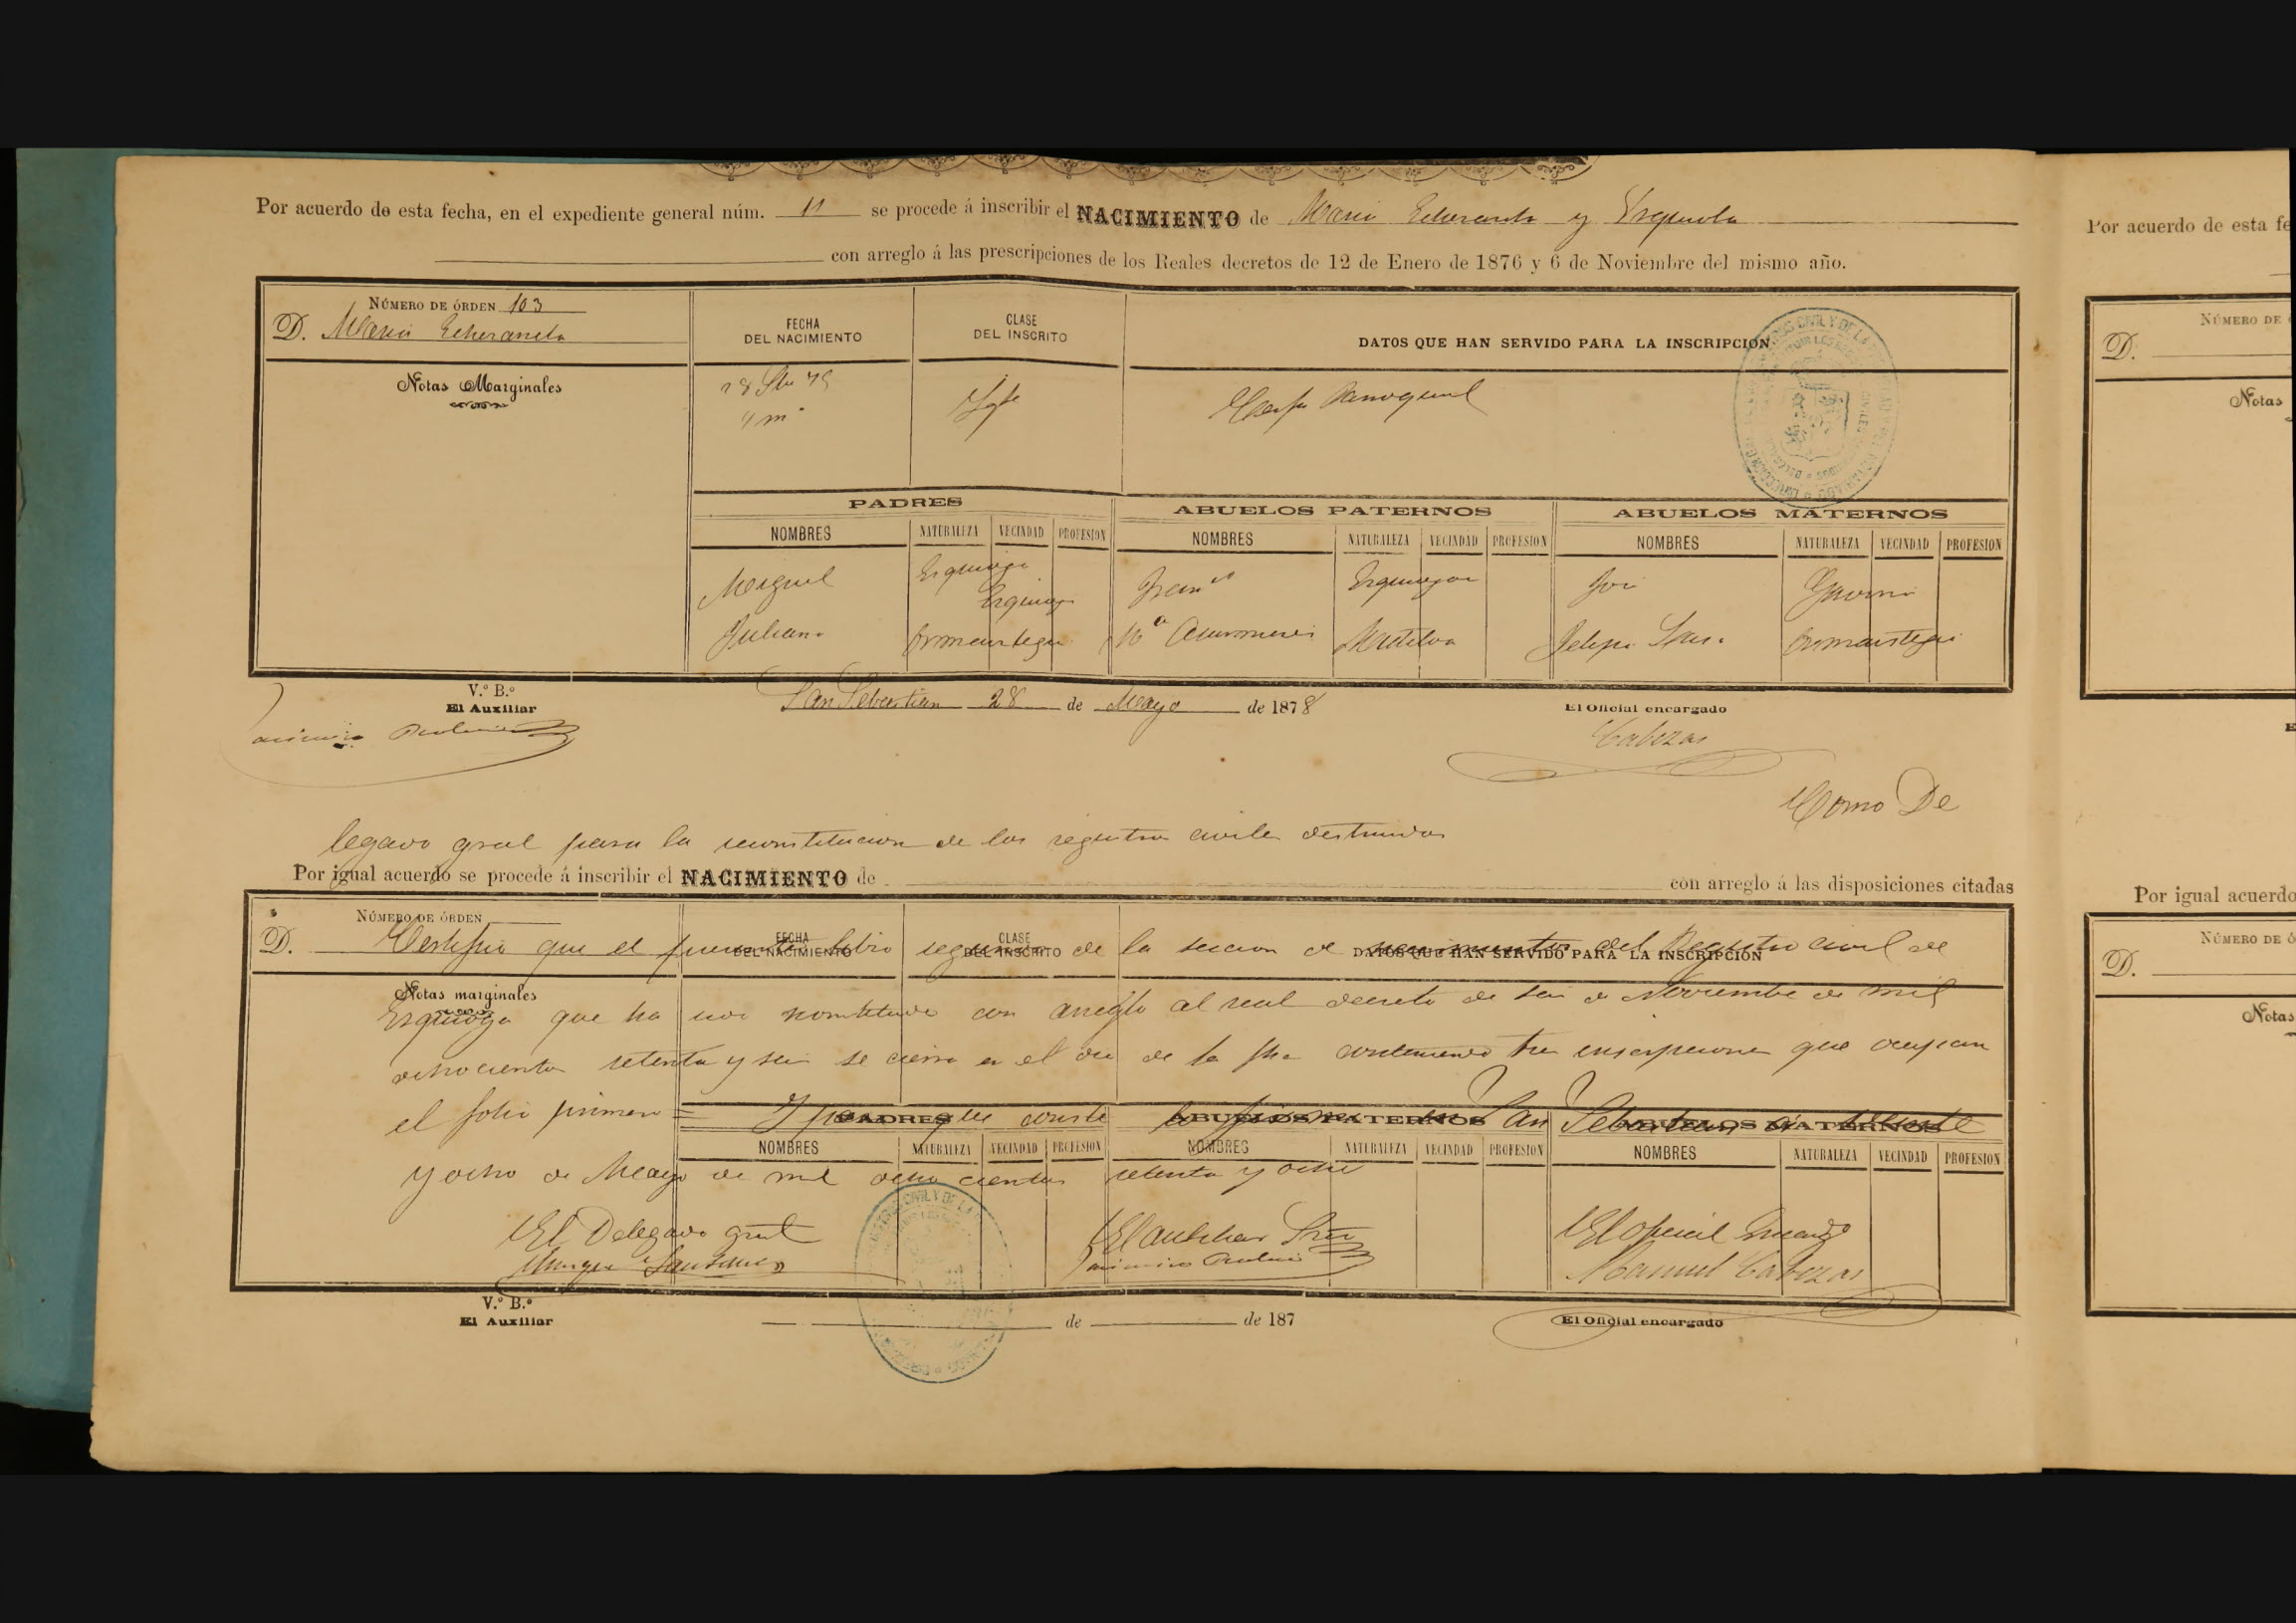 Por acuerdo de esta fecha, en el expediente general núm. 11 se procede á inscribir el NACIMIENTO de Maria y
con arreglo á las prescripciones de los Reales decretos de 12 de Enero de 1876 y 6 de Noviembre del mismo año.
NÚMERO DE ÓRDEN 103
D. Maria
Notas Marginales
FECHA DEL NACIMIENTO
CLASE DEL INSCRITO
DATOS QUE HAN SERVIDO PARA LA INSCRIPCION
4 m
PADRES
ABUELOS PATERNOS
ABUELOS MATERNOS
NOMBRES NATURALEZA VECINDAD PROFESION NOMBRES NATURALEZA VECINDAD PROFESION NOMBRES NATURALEZA VECINDAD PROFESION
Miguel Ezquioga Ezquioga Ezquioga Gaviria
Juliana Ormaiztegui Mutiloa Ormaiztegui
V.º B.º
El Auxiliar
San Sebastian 28 de Mayo de 1878
El Oficial encargado
Cabezas
Como De
legado gral para la reconstitucion de los registros civiles destruidos
Por igual acuerdo se procede á inscribir el NACIMIENTO de con arreglo á las disposiciones citadas
NÚMERO DE ÓRDEN
D.
FECHA DEL NACIMIENTO
CLASE DEL INSCRITO
DATOS QUE HAN SERVIDO PARA LA INSCRIPCIÓN
Notas marginales
Certifico que el presente libro segundo de la seccion de nacimientos del Registro civil de
Ezquioga que ha sido reconstituido con arreglo al real decreto de seis de Noviembre de mil
ochocientos setenta y seis se cierra en el dia de la fha conteniendo tres inscripciones que ocupan
el folio primero = Y para que conste lo firmo en San Sebastian á veinte
y ocho de Mayo de mil ocho cientos setenta y ocho
PADRES
ABUELOS PATERNOS
ABUELOS MATERNOS
NOMBRES NATURALEZA VECINDAD PROFESION NOMBRES NATURALEZA VECINDAD PROFESION NOMBRES NATURALEZA VECINDAD PROFESION
El Delegado gral
El auxiliar Srio
El oficial Encargdo
Manuel Cabezas
V.º B.º
El Auxiliar
de de 187
El Oficial encargado
Por acuerdo de esta fe
NÚMERO DE
D.
Notas
Por igual acuerdo
NÚMERO DE Ó
D.
Notas